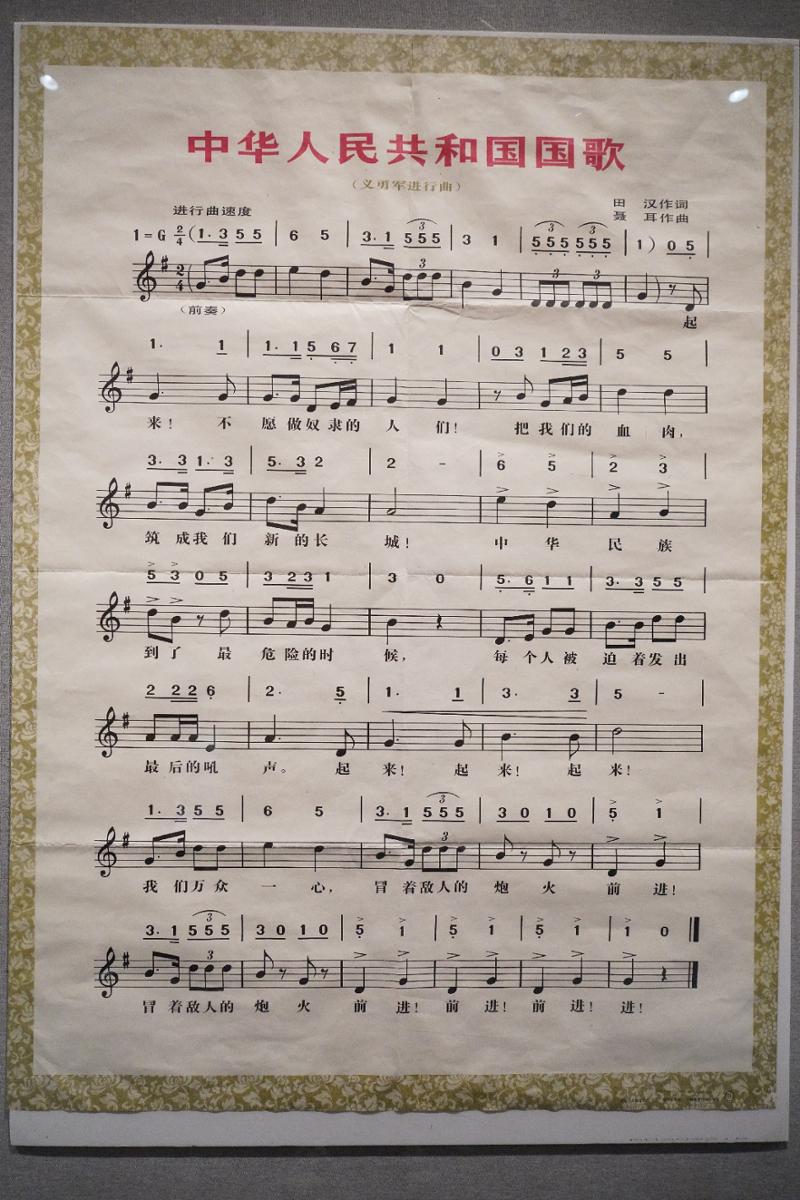 中华人民共和国国歌
（义勇军进行曲）
进行曲速度
田 汉作词
聂 耳作曲
1=G 2/4 (1. 3 5 5 | 6 5 | 3. 1 5 5 5 | 3 1 | 5 5 5 5 5 5 | 1) 0 5 |
（前奏）
起
1. 1 | 1. 1 5 6 7 | 1 1 | 0 3 1 2 3 | 5 5 |
来！ 不 愿 做 奴 隶 的 人 们！ 把 我 们 的 血 肉，
3. 3 1. 3 | 5. 3 2 | 2 - | 6 5 | 2 3 |
筑 成 我 们 新 的 长 城！ 中 华 民 族
5 3 0 5 | 3 2 3 1 | 3 0 | 5. 6 1 1 | 3. 3 5 5 |
到 了 最 危 险 的 时 候， 每 个 人 被 迫 着 发 出
2 2 2 6 | 2. 5 | 1. 1 | 3. 3 | 5 - |
最 后 的 吼 声。 起 来！ 起 来！ 起 来！
1. 3 5 5 | 6 5 | 3. 1 5 5 5 | 3 0 1 0 | 5 1 |
我 们 万 众 一 心， 冒 着 敌 人 的 炮 火 前 进！
3. 1 5 5 5 | 3 0 1 0 | 5 1 | 5 1 | 5 1 | 1 0 ‖
冒 着 敌 人 的 炮 火 前 进！ 前 进！ 前 进！ 进！